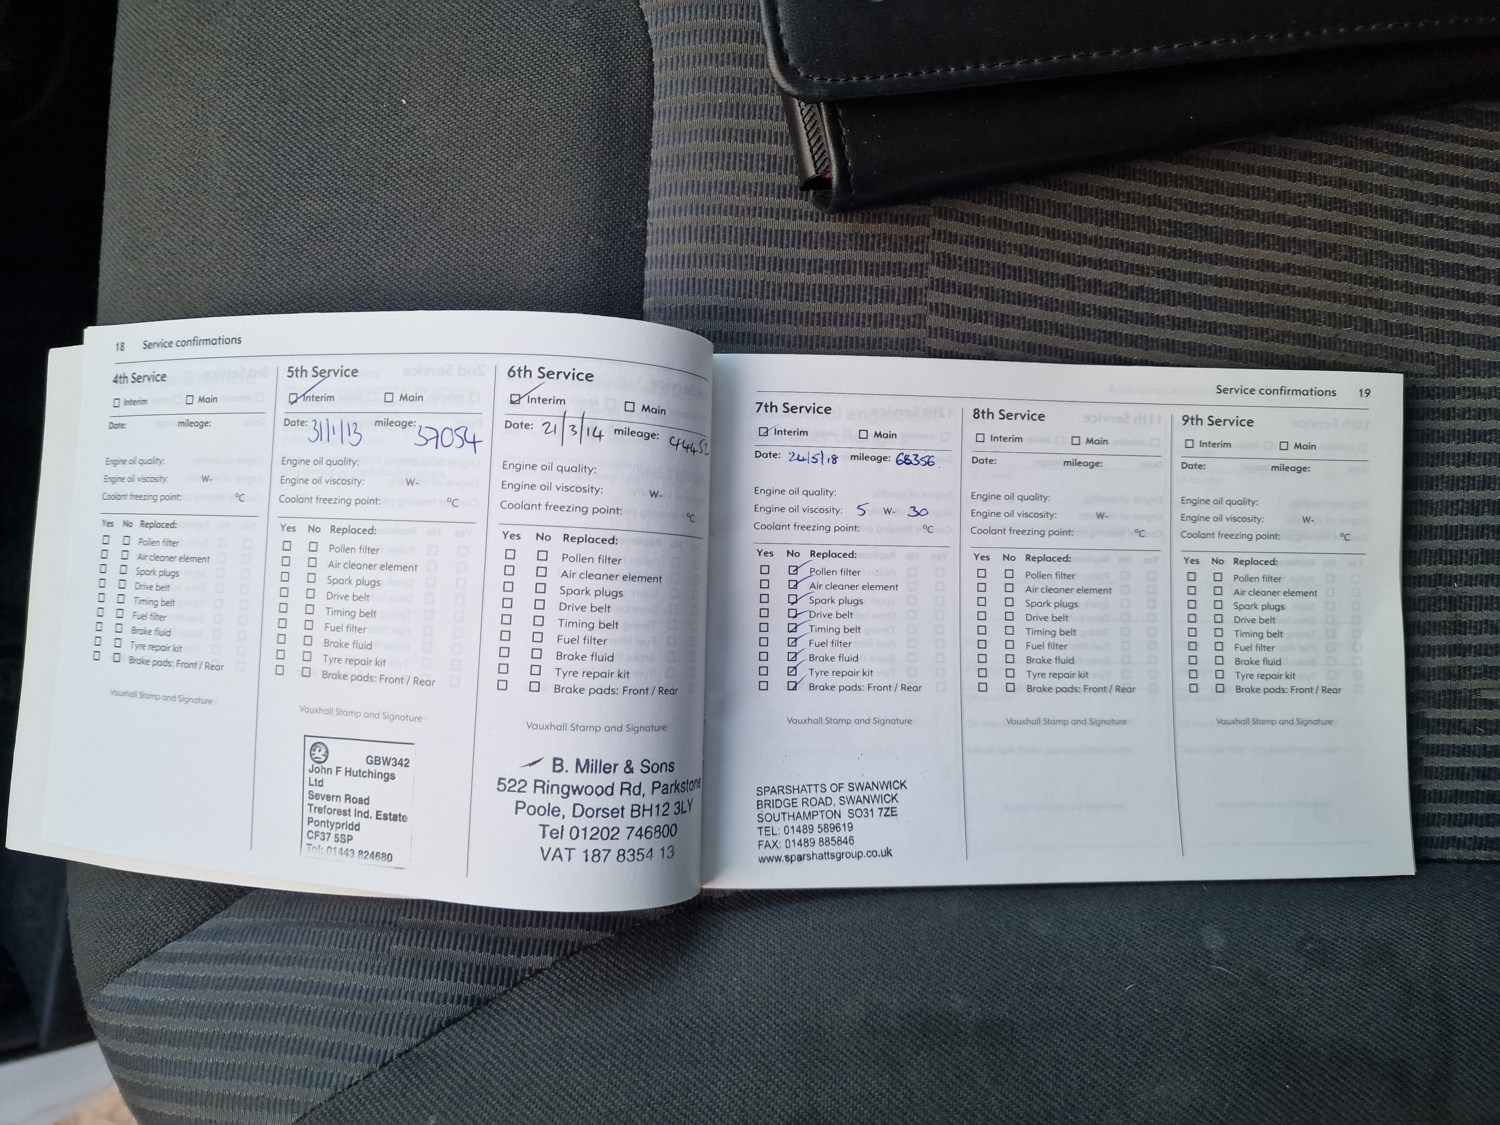 18 Service confirmations
4th Service
Interim Main
Date: mileage:
Engine oil quality:
Engine oil viscosity: W-
Coolant freezing point: °C
Yes No Replaced:
Pollen filter
Air cleaner element
Spark plugs
Drive belt
Timing belt
Fuel filter
Brake fluid
Tyre repair kit
Brake pads: Front / Rear
Vauxhall Stamp and Signature
5th Service
Interim Main
Date: 31/1/13 mileage: 37054
Engine oil quality:
Engine oil viscosity: W-
Coolant freezing point: °C
Yes No Replaced:
Pollen filter
Air cleaner element
Spark plugs
Drive belt
Timing belt
Fuel filter
Brake fluid
Tyre repair kit
Brake pads: Front / Rear
Vauxhall Stamp and Signature
GBW342
John F Hutchings
Ltd
Severn Road
Treforest Ind. Estate
Pontypridd
CF37 5SP
Tel: 01443 824680
6th Service
Interim Main
Date: 21/3/14 mileage:
Engine oil quality:
Engine oil viscosity: W-
Coolant freezing point: °C
Yes No Replaced:
Pollen filter
Air cleaner element
Spark plugs
Drive belt
Timing belt
Fuel filter
Brake fluid
Tyre repair kit
Brake pads: Front / Rear
Vauxhall Stamp and Signature
B. Miller & Sons
522 Ringwood Rd, Parkstone
Poole, Dorset BH12 3LY
Tel 01202 746800
VAT 187 8354 13
Service confirmations 19
7th Service
Interim Main
Date: 24/5/18 mileage: 68356
Engine oil quality:
Engine oil viscosity: 5 W- 30
Coolant freezing point: °C
Yes No Replaced:
Pollen filter
Air cleaner element
Spark plugs
Drive belt
Timing belt
Fuel filter
Brake fluid
Tyre repair kit
Brake pads: Front / Rear
Vauxhall Stamp and Signature
SPARSHATTS OF SWANWICK
BRIDGE ROAD, SWANWICK
SOUTHAMPTON SO31 7ZE
TEL: 01489 589619
FAX: 01489 885846
www.sparshattsgroup.co.uk
8th Service
Interim Main
Date: mileage:
Engine oil quality:
Engine oil viscosity: W-
Coolant freezing point: °C
Yes No Replaced:
Pollen filter
Air cleaner element
Spark plugs
Drive belt
Timing belt
Fuel filter
Brake fluid
Tyre repair kit
Brake pads: Front / Rear
Vauxhall Stamp and Signature
9th Service
Interim Main
Date: mileage:
Engine oil quality:
Engine oil viscosity: W-
Coolant freezing point: °C
Yes No Replaced:
Pollen filter
Air cleaner element
Spark plugs
Drive belt
Timing belt
Fuel filter
Brake fluid
Tyre repair kit
Brake pads: Front / Rear
Vauxhall Stamp and Signature